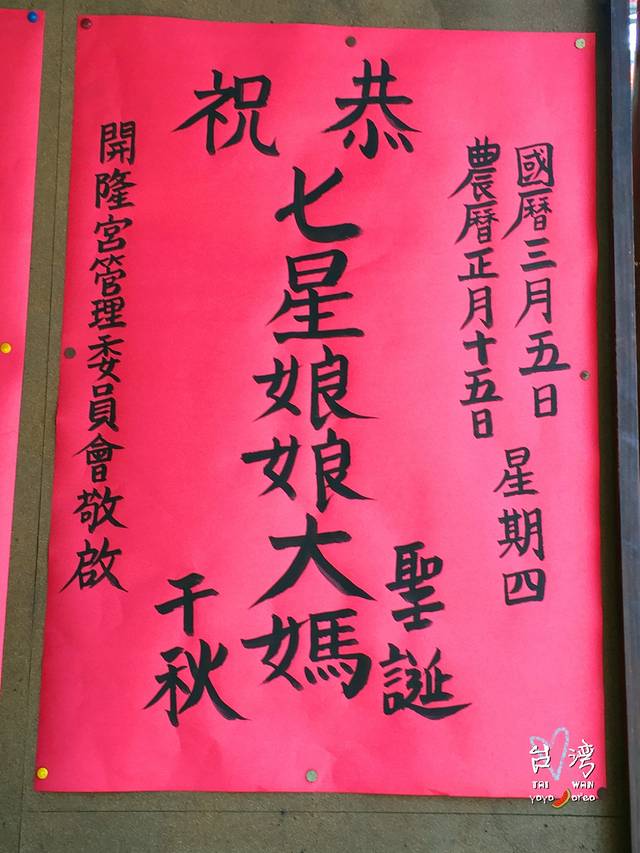 國曆三月五日 星期四
農曆正月十五日
恭祝
七星娘娘大媽
聖誕
千秋
開隆宮管理委員會敬啟
台湾
TAI WAN
yoyo orea